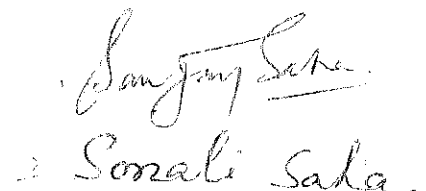 Sanjoy Saha.
Sonali Saha.